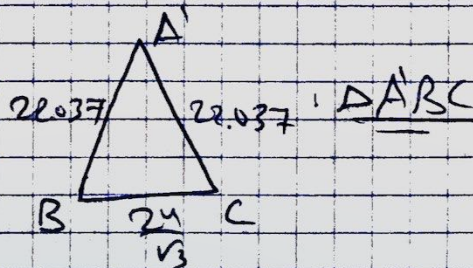 A'
22.037 22.037 : ΔA'BC
B 24/√3 C